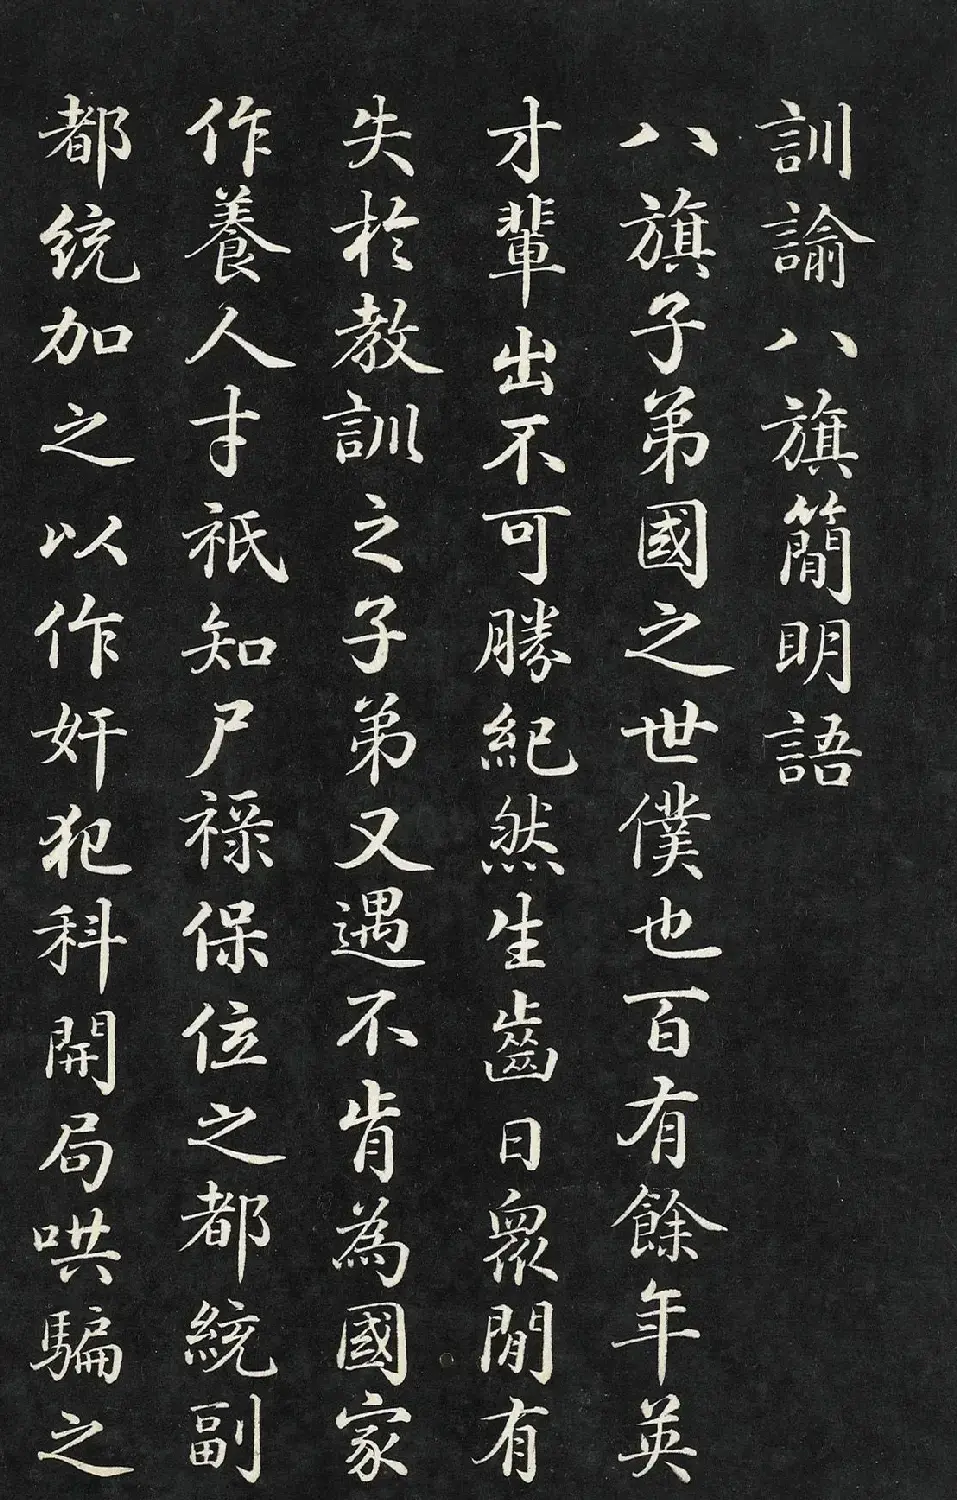 訓諭八旗簡明語
八旗子弟國之世僕也百有餘年英
才輩出不可勝紀然生齒日衆閒有
失於教訓之子弟又遇不肯為國家
作養人才祇知尸祿保位之都統副
都統加之以作奸犯科開局哄騙之